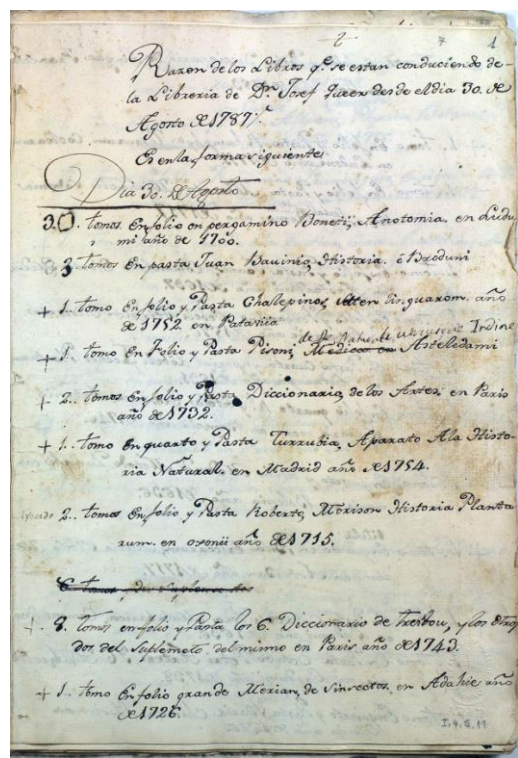 1
Razon de los Libros q.e se estan conduciendo de-
la Libreria de D.n Josef Queer desde el dia 30. de
Agosto de 1787.
Es en la forma siguiente
Dia 30. de Agosto
3. tomos en folio en pergamino Boneti, Anotomia. en Ludu
mi año de 1700.
3 tomos en pasta Juan Bauinio, Historia. è Broduni
+ 1. tomo en folio, y Pasta Chalepinos, linguarom. año
de 1752 en Pataviia
de Indiae
+ 1. tomo en Folio y Pasta Pisoni, Medico Asteledami
+ 2. tomos en folio y Pasta Diccionario, de los Artes, en Paris
año de 1732.
+ 1. tomo en quarto y Pasta Turrubia, Aparato A la Histo-
ria Natural. en Madrid año de 1754.
2.. tomos en folio y Pasta Roberto, Morison Historia Planta
rum. en oxonii año de 1715.
6 tomos de
8. tomos en folio y Pasta los 6. Diccionario de Treibou, y los otros
dos, del Suplemeto. del mismo en Paris año de 1743.
+ 1. tomo en folio grande Merian, de Sinsectos, en Adahie año
de 1726.
I, 4, 8, 11